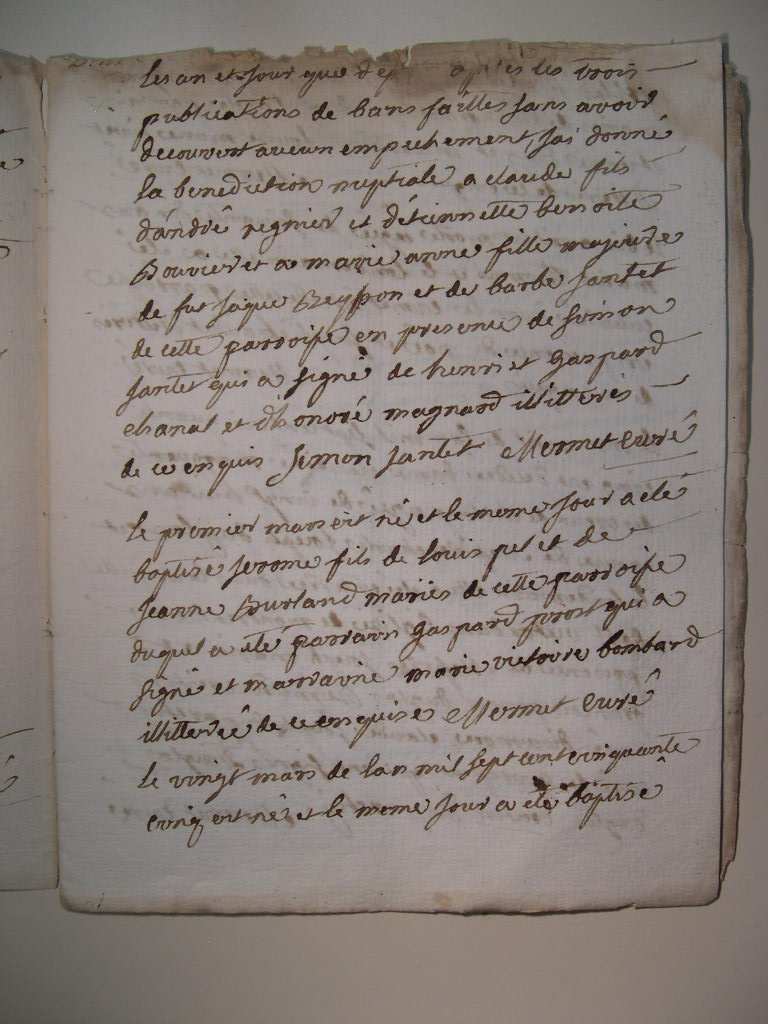 les an et jour que d apres les trois
publications de bans faittes sans avoir
decouvert aucun empechement, jai donné
la benediction nuptiale a claude fils
d'andré regnier et d'étiennette benoite
Bouvier et a marie anne fille majeure
de fut jaque Reyppon et de barbe jantet
de cette parroisse en presence de simon
jantet qui a signé de henri et gaspard
chanal et d'honoré magnard illitterés
de ce enquis Simon jantet Mermet curé
le premier mars est né et le meme jour a eté
baptisé jerome fils de louis petit de
jeanne Burland mariés de cette parroisse
duquel a eté parrain gaspard prost qui a
signé et marraine marie victoire bombard
illitterée de ce enquise Mermet curé
le vingt mars de lan mil sept cent cinquante
cinq est né et le meme jour a eté baptisé